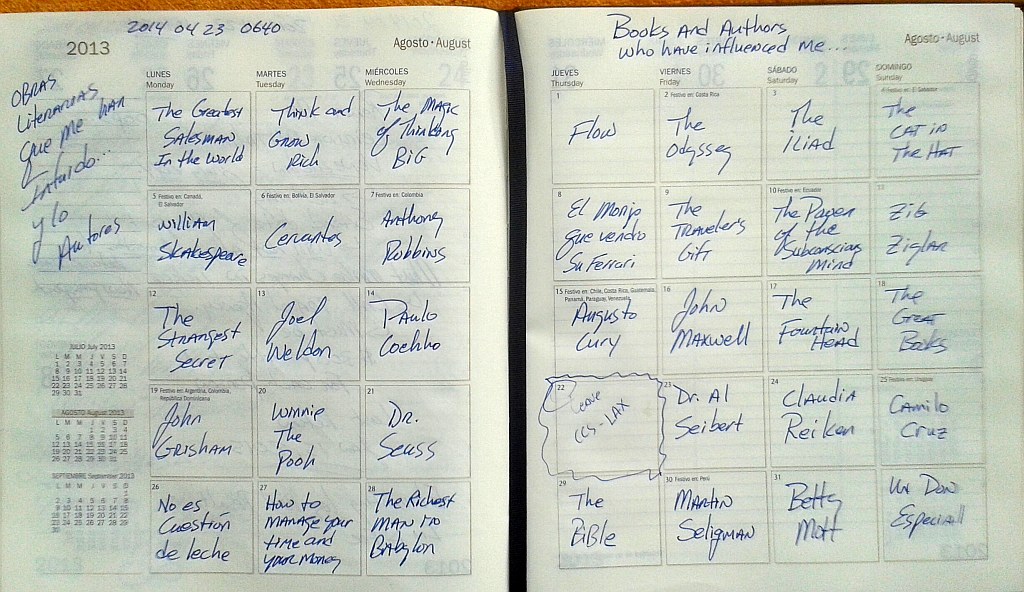 2014 04 23 0640
2013
Agosto • August
OBRAS
Literarias
que me han
y lo
Autores
LUNES
Monday
MARTES
Tuesday
MIÉRCOLES
Wednesday
The Greatest
Salesman
In the World
Think and
Grow
Rich
The Magic
of Thinking
BiG
5 Festivo en: Canadá,
El Salvador
William
Skakespeare
6 Festivo en: Bolivia, El Salvador
Cervantes
7 Festivo en: Colombia
Anthony
Robbins
12
The
Strangest
Secret
13
Joel
Weldon
14
Paulo
Coehho
19 Festivo en: Argentina, Colombia,
República Dominicana
John
GRISHAM
20
Winnie
The
Pooh
21
Dr.
Seuss
26
No es
Cuestión
de leche
27
How to
MANAGE your
time and
your Money
28
The Richest
MAN in
Babylon
JULIO July 2013
L M M J V S D
1 2 3 4 5 6 7
8 9 10 11 12 13 14
15 16 17 18 19 20 21
22 23 24 25 26 27 28
29 30 31
AGOSTO August 2013
L M M J V S D
1 2 3 4
5 6 7 8 9 10 11
12 13 14 15 16 17 18
19 20 21 22 23 24 25
26 27 28 29 30 31
SEPTIEMBRE September 2013
L M M J V S D
1
2 3 4 5 6 7 8
9 10 11 12 13 14 15
16 17 18 19 20 21 22
23 24 25 26 27 28 29
30
Books And Authors
who have influenced me...
Agosto • August
JUEVES
Thursday
VIERNES
Friday
SÁBADO
Saturday
DOMINGO
Sunday
1
Flow
2 Festivo en: Costa Rica
The
Odyssey
3
The
iLiad
4 Festivo en: El Salvador
The
CAT in
The HAT
8
El Monje
que vendio
Su Ferrari
9
The
TRAveler's
Gift
10 Festivo en: Ecuador
The Power
of the
Subconscious
Mind
11
Zig
Ziglar
15 Festivo en: Chile, Costa Rica, Guatemala,
Panamá, Paraguay, Venezuela
Augusto
Cury
16
John
Maxwell
17
The
Fountain
Head
18
The
Great
Books
22
CCS-LAX
23
Dr. Al
Seibert
24
Claudia
Reiken
25 Festivo en: Uruguay
Camilo
Cruz
29
The
BiBle
30 Festivo en: Perú
MARTIN
Seligman
31
Betty
Mott
Un Don
Especial